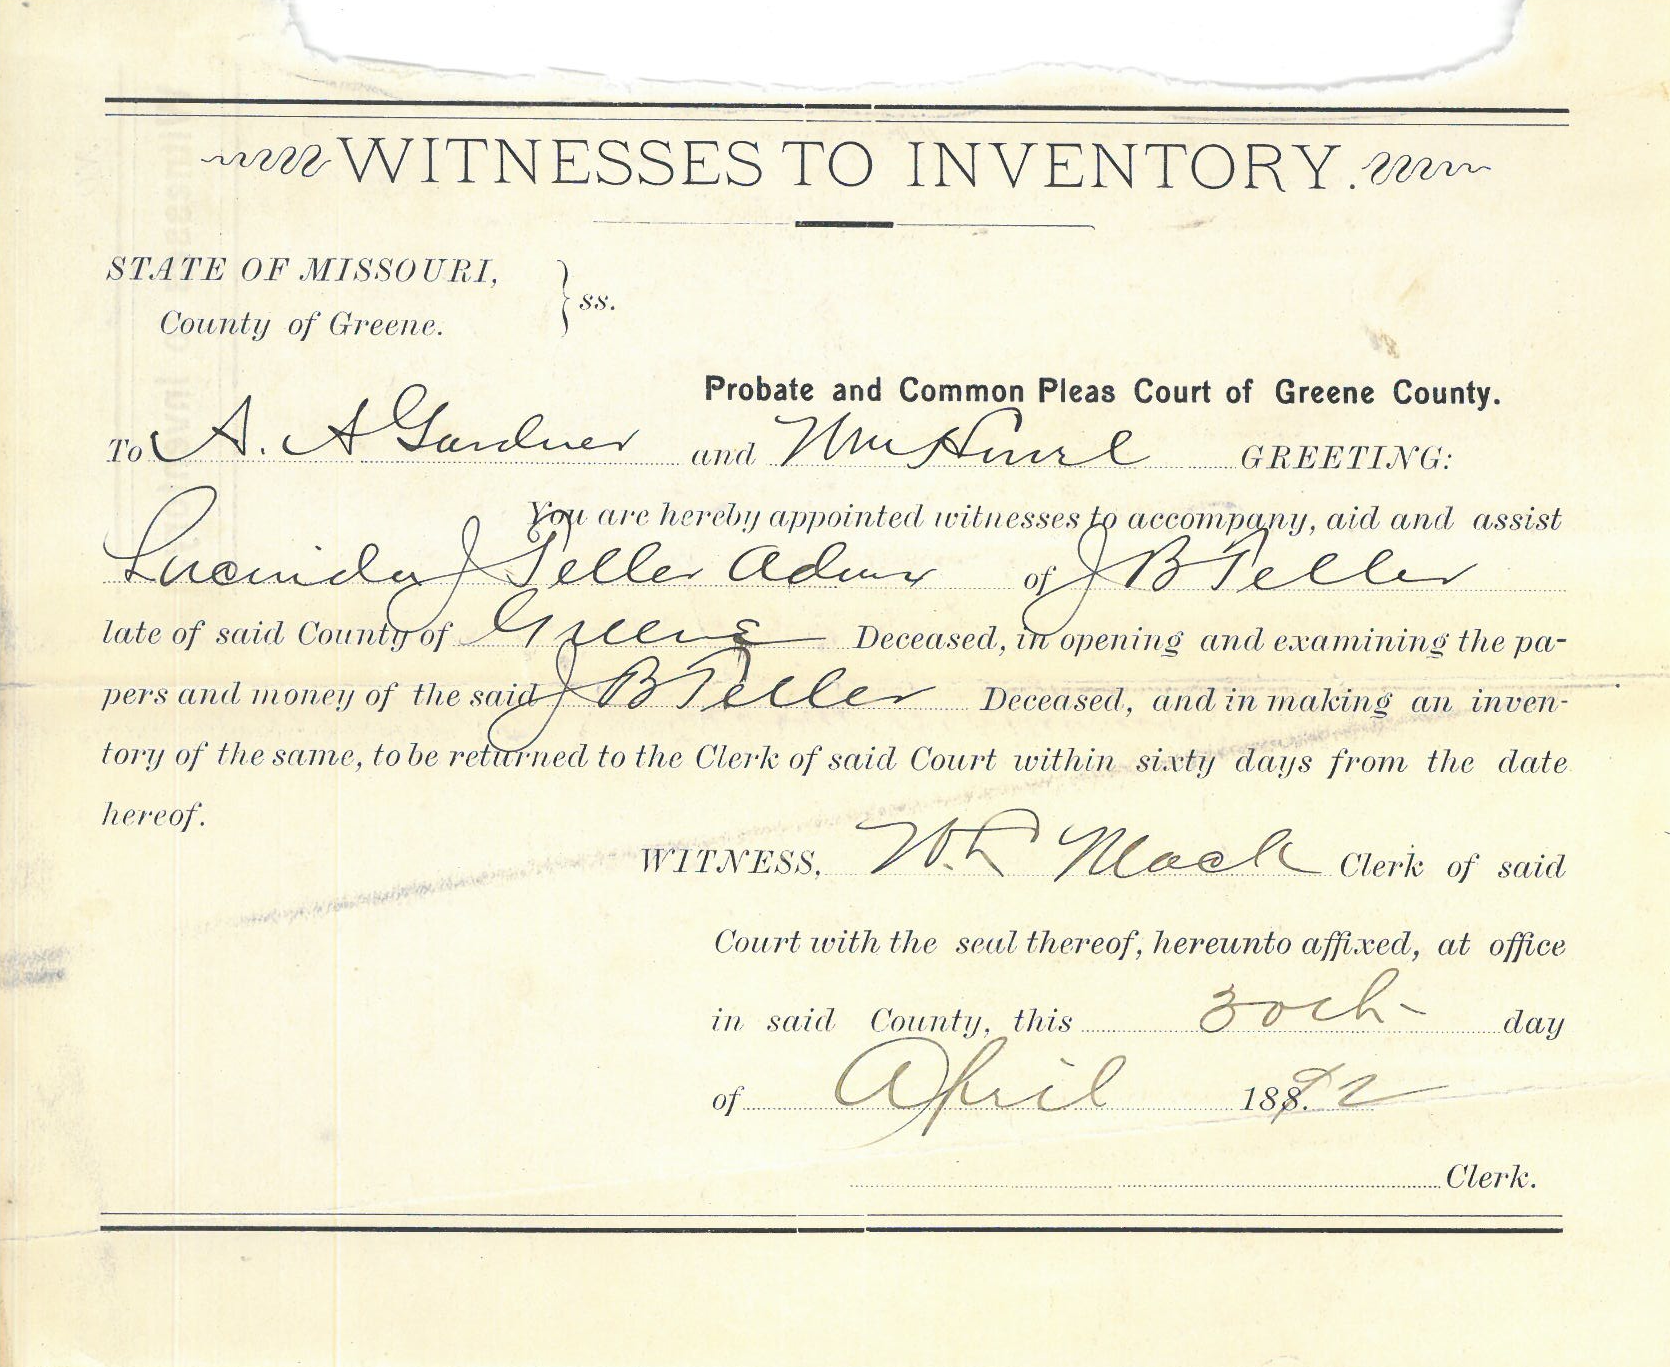 WITNESSES TO INVENTORY.
STATE OF MISSOURI,
County of Greene. } ss.
Probate and Common Pleas Court of Greene County.
To A. A Gardner and Wm GREETING:
You are hereby appointed witnesses to accompany, aid and assist
Lucinda J Teller Admx of J B Teller
late of said County of Greene Deceased, in opening and examining the pa-
pers and money of the said J B Teller Deceased, and in making an inven-
tory of the same, to be returned to the Clerk of said Court within sixty days from the date
hereof.
WITNESS, Mack Clerk of said
Court with the seal thereof, hereunto affixed, at office
in said County, this 30th day
of April 1892
Clerk.